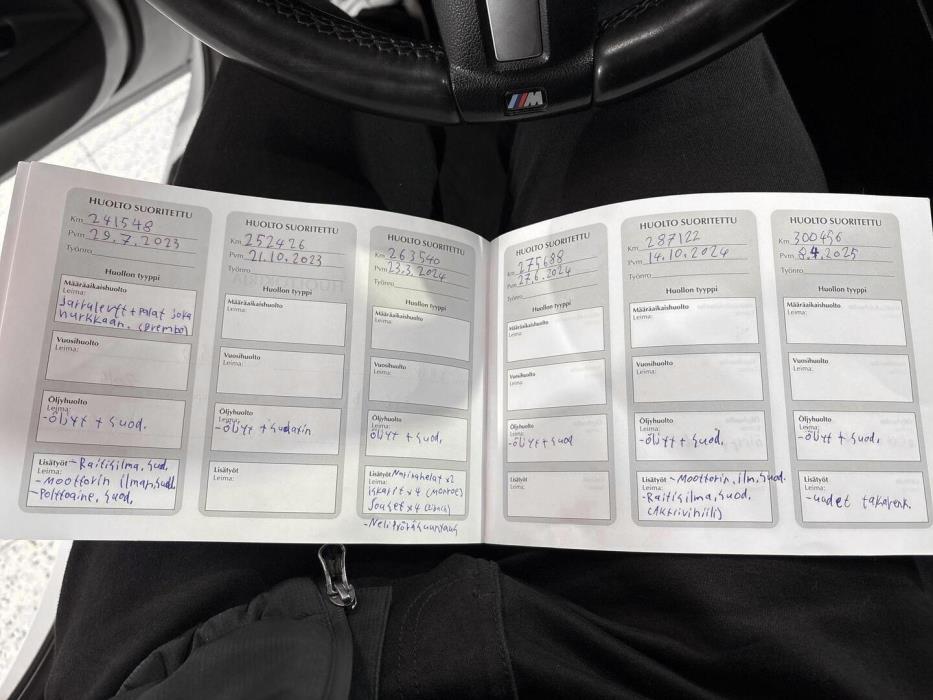 M
HUOLTO SUORITETTU
Km 241548
Pvm 29.7.2023
Työnro
Huollon tyyppi
Määräaikaishuolto
Leima:
Jarrulevyt + palat joka
nurkkaan. (Brembo)
Vuosihuolto
Leima:
Öljyhuolto
Leima:
-öljyt + suod.
Lisätyöt - Raitisilma. suod.
Leima:
-moottorin ilman suod.
-Polttoaine. suod.
HUOLTO SUORITETTU
Km 252426
Pvm 21.10.2023
Työnro
Huollon tyyppi
Määräaikaishuolto
Leima:
Vuosihuolto
Leima:
Öljyhuolto
Leima:
-öljyt + suodatin
Lisätyöt
Leima:
HUOLTO SUORITETTU
Km 263540
Pvm 23.3.2024
Työnro
Huollon tyyppi
Määräaikaishuolto
Leima:
Vuosihuolto
Leima:
Öljyhuolto
Leima:
öljyt + suod.
Lisätyöt x2
Leima:
iskarit x 4 (Monroe)
Jouset x 4
-Nelipyöräsuuntaus
HUOLTO SUORITETTU
Km 275688
Pvm 27.6.2024
Työnro
Huollon tyyppi
Määräaikaishuolto
Leima:
Vuosihuolto
Leima:
Öljyhuolto
Leima:
-öljyt + suod
Lisätyöt
Leima:
HUOLTO SUORITETTU
Km 287122
Pvm 14.10.2024
Työnro
Huollon tyyppi
Määräaikaishuolto
Leima:
Vuosihuolto
Leima:
Öljyhuolto
Leima:
-öljyt + suod.
Lisätyöt - Moottorin. ilm. suod.
Leima:
-Raitisilma. suod.
(Aktiivihiili)
HUOLTO SUORITETTU
Km 300456
Pvm 8.4.2025
Työnro
Huollon tyyppi
Määräaikaishuolto
Leima:
Vuosihuolto
Leima:
Öljyhuolto
Leima:
-öljyt + suod.
Lisätyöt
Leima:
-uudet takarenk.